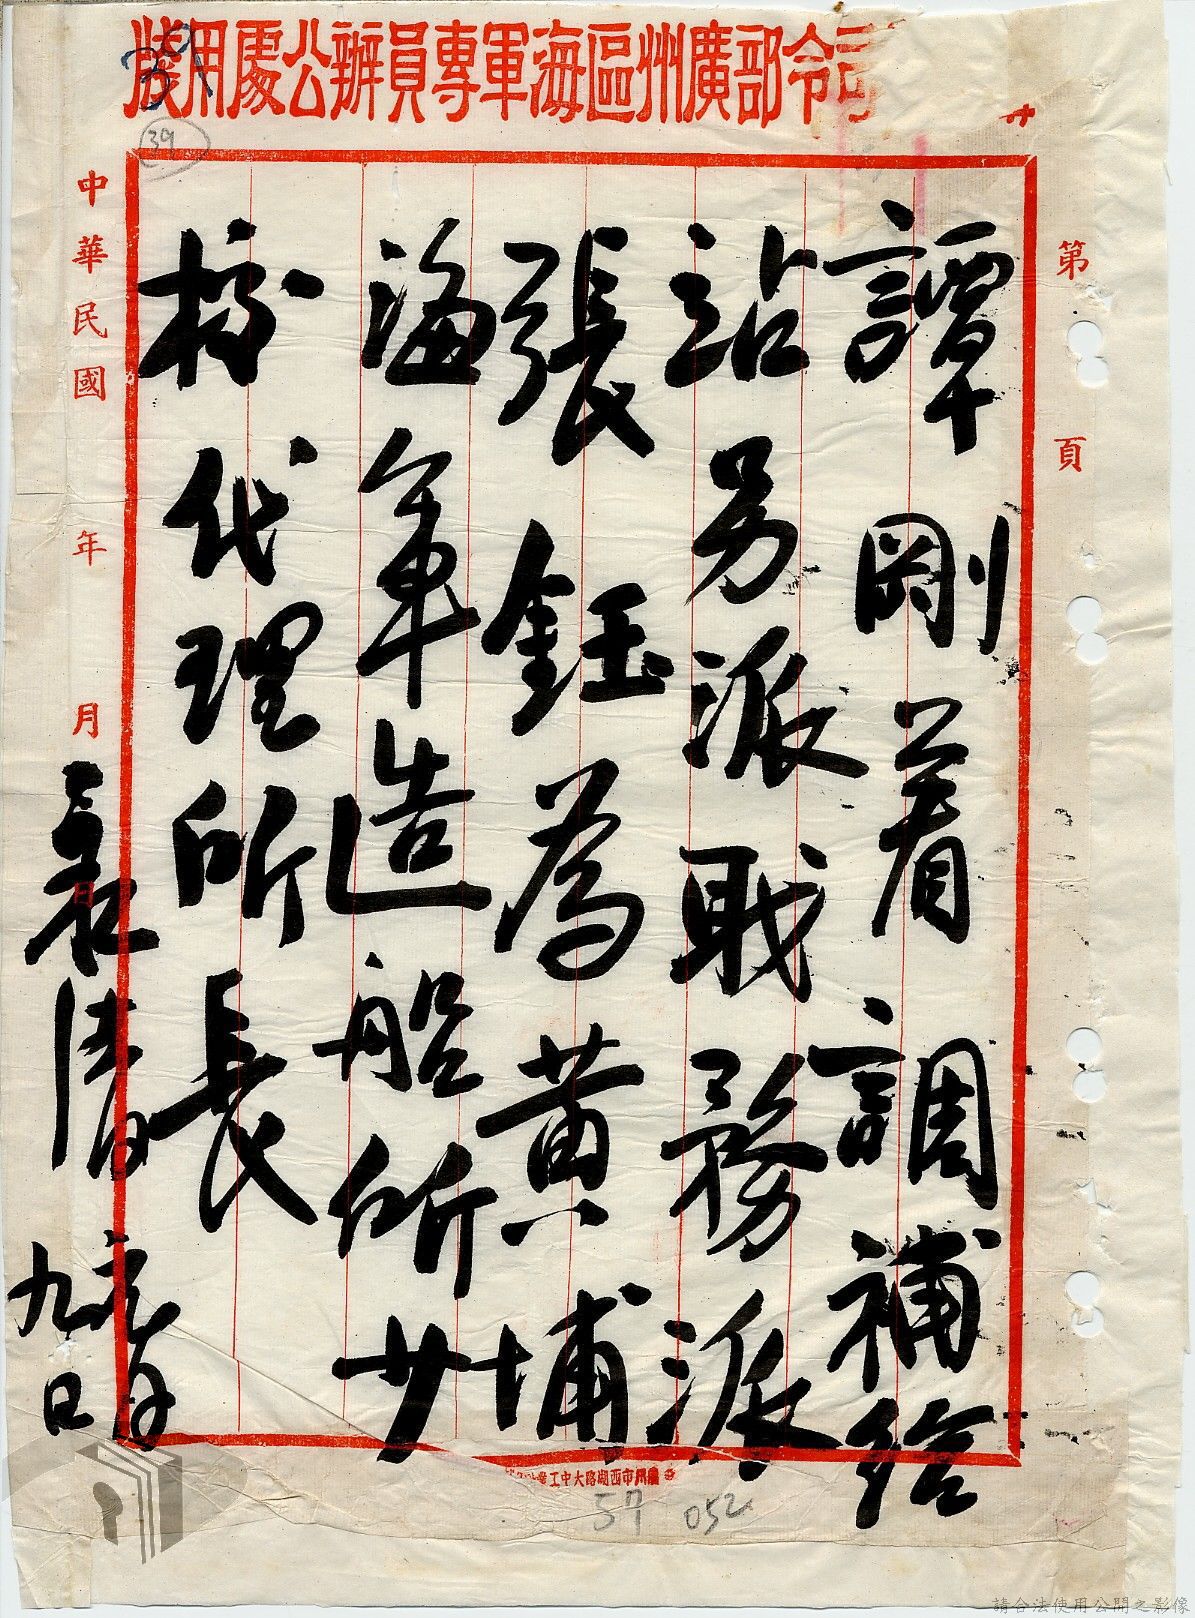 司令部廣州區海軍專員辦公處用牋
39
39
第 頁
譚剛着調補給
站另派職務派
張鈺為黃埔
海軍造船所少
校代理所長
中華民國 年 月 日
九日
廣州市西湖路大中工
57 052
請合法使用公開之影像